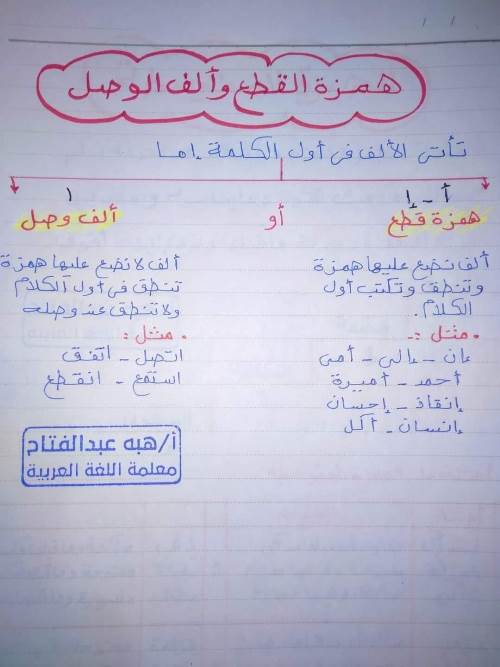 همزة القطع وألف الوصل
تأتى الألف فى أول الكلمة إما
أ - إ
همزة قطع
ألف نضع عليها همزة
وتنطق وتكتب أول
الكلام.
• مثل :-
إن - إلى - أمى
أحمد - أميرة
إنقاذ - إحسان
إنسان - أكل
أو
ا
ألف وصل
ألف لا نضع عليها همزة
تنطق فى أول الكلام
ولا تنطق عند وصله
• مثل :
اتصل - اتفق
استمع - انقطع
أ/هبه عبدالفتاح
معلمة اللغة العربية